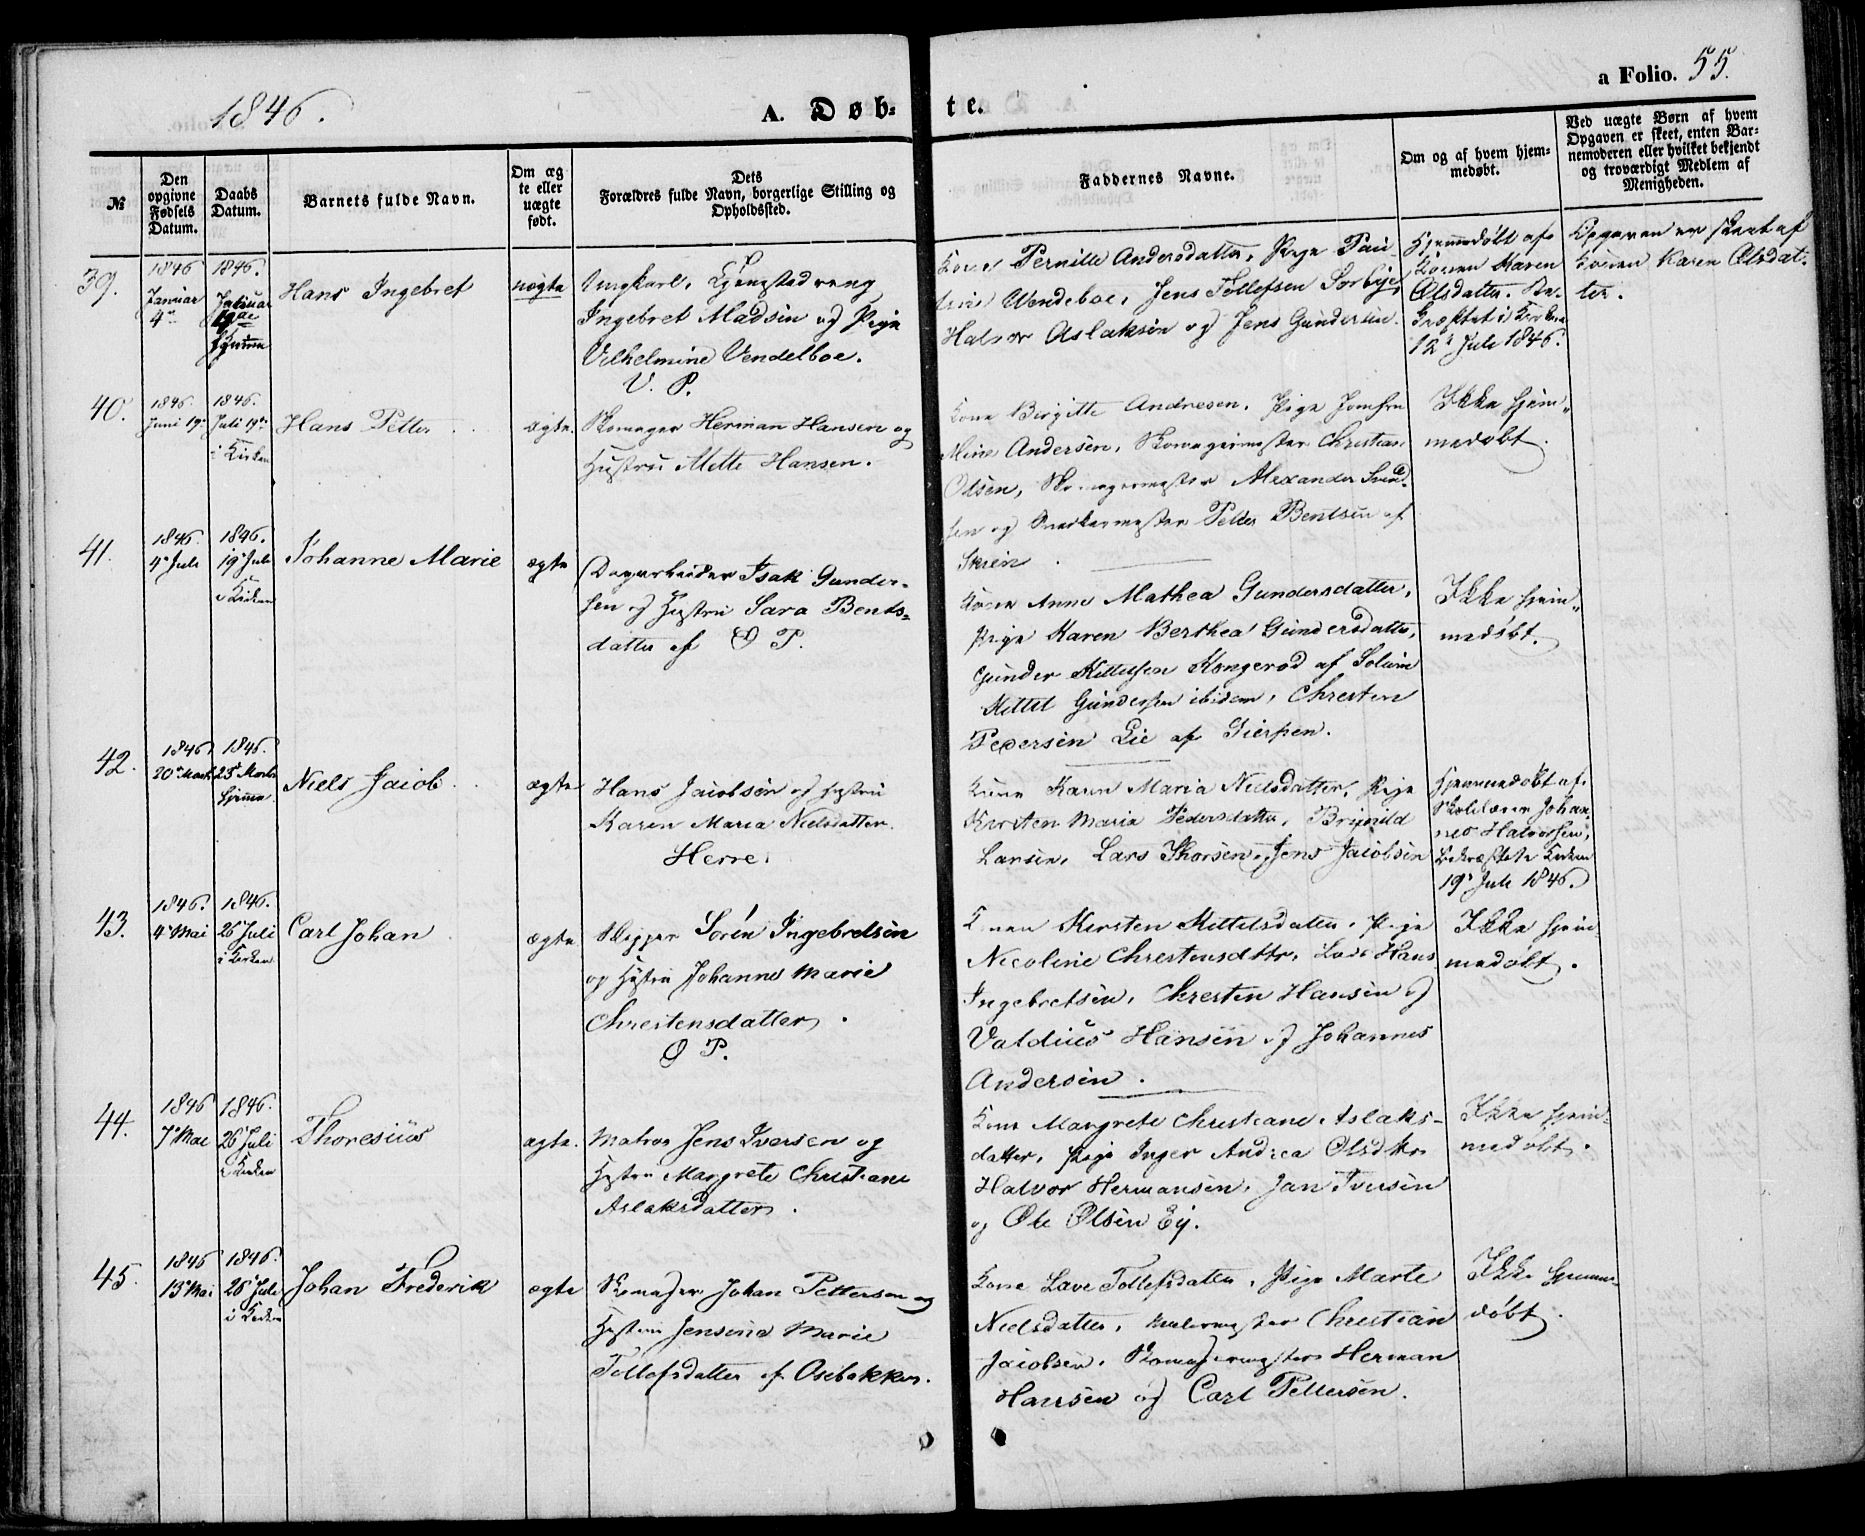 1846.
A. Døb-
te.
a Folio. 55.
№
Den opgivne Fødsels Datum.
Daabs Datum.
Barnets fulde Navn.
Om ægte eller uægte født.
Dets
Forældres fulde Navn, borgerlige Stilling og
Opholdssted.
Faddernes Navne.
Om og af hvem hjemmedøbt.
Ved uægte Børn af hvem
Opgaven er skeet, enten Bar-
nemoderen eller hvilket bekjendt
og troværdigt Medlem af
Menigheden.
39.
1846 Januar 4de
1846. Januar
hjemme
Hans Ingebret
uægte
Ungkarl,
Ingebret Madsen og Pige
Vilhelmine Vendelboe.
V. P.
Kone Pernille Andersdatter, Pige Pau-
line Wendelboe, Jens Tollefsen Sorbye,
Halvor Aslaksen og Jens Gundersen.
Hjemmedøbt af
Konen Maren
Olsdatter. Be-
kræftet i Kirken
12te Juli 1846.
Opgaven er skeet af
Konen Karen Olsdat-
ter.
40.
1846. Juni 19de
1846. Juli 19de
i Kirken
Hans Petter
ægte.
Skomager Herman Hansen og
Hustru Mette Hansen.
Kone Birgitte Andresen, Pige Jomfru
Mine Andersen, Skomagermester Christian
Olsen, Skomagermester Alexander Svend-
sen og Snedkermester Peder Bentsen af
Skien
Ikke hjem-
medøbt.
41.
1846. 4de Juli
1846. 19de Juli
i Kirken
Johanne Marie
ægte
Dagarbeider Isak Gunder-
sen og Hustru Sara Bents-
datter af Ø P.
Kone Anne Mathea Gundersdatter,
Pige Karen Berthea Gundersdatter,
Gunder Kittilsen Kongerød af Solum
Kittil Gundersen ibidem, Chresten
Pedersen Lie af Gierpen.
Ikke hjem-
medøbt.
42.
1846. 20de Marts
1846. 23de Marts
hjemme
Niels Jacob
ægte
Hans Jacobsen og Hustru
Karen Maria Nielsdatter.
Herre.
Kone Karen Maria Nielsdatter, Pige
Kirsten Maria Pedersdatter, Brynild
Larsen, Lars Thorsen, Jens Jacobsen
Hjemmedøbt af
Skolelærer Johan-
nes Halvorsen,
bekræftet i Kirken
19de Juli 1846.
43.
1846. 4de Mai
1846. 26 Juli
i Kirken
Carl Johan
ægte
Skipper Sørén Ingebretsen
og Hustru Johanne Marie
Chrestensdatter.
Ø P.
Konen Kirsten Kittilsdatter, Pige
Nicoline Chrestensdttr, Lods Hans
Ingebretsen, Chresten Hansen og
Valdius Hansen og Johannes
Andersen.
Ikke hjem-
medøbt.
44.
1846 7de Mai
1846. 26 Juli
i Kirken
Thoresius
ægte.
Matros Jens Iversen og
Hustru Margrete Christiane
Aslaksdatter.
Kone Margrete Christiane Aslaks-
datter, Pige Inger Andrea Olsdttr.
Halvor Hermansen, Jan Iversen
og Ole Olsen Ey.
Ikke hjem-
medøbt.
45.
1846 13de Mai
1846. 26 Juli
i Kirken
Johan Frederik
ægte
Skomager Johan Pettersen og
Hustru Jensine Marie
Tollefsdatter af Osebakken.
Kone Lave Tollefsdatter, Pige Marte
Nielsdatter, Malermester Christian
Jacobsen, Skomagermester Herman
Hansen og Carl Pettersen.
Ikke hjemme-
døbt.